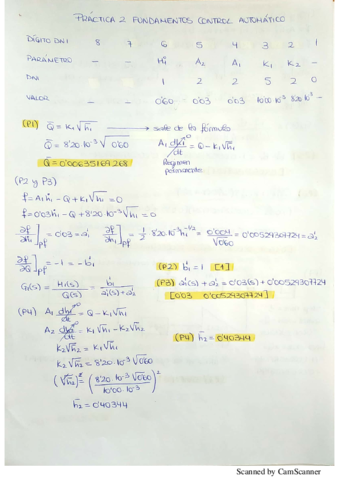 PRÁCTICA 2 FUNDAMENTOS CONTROL AUTOMÁTICO
DÍGITO DNI 8 7 6 5 4 3 2 1
PARÁMETRO - - H̄₁ A₂ A₁ K₁ K₂ -
DNI 1 2 2 5 2 0
VALOR - - 0'60 0'03 0'03 10'00·10⁻³ 8'20·10⁻³ -
(P1) Q̄ = K₁√h̄₁ → sale de las fórmulas
Q̄ = 8'20·10⁻³ √0'60
A₁ dh₁/dt = Q - K₁√h̄₁
Q̄ = 0'00635169268
Régimen permanente
(P2 y P3)
f = A₁h₁ - Q + K₁√h₁ = 0
f = 0'03h₁ - Q + 8'20·10⁻³√h₁ = 0
∂f/∂h₁]pf = 0'03 = a'₁ ∂f/∂h₁]pf = 1/2 8'20·10⁻³h₁^-1/2 = 0'0041/√0'60 = 0'00529307724 = a'₂
∂f/∂Q]pf = -1 = -b'₁
(P2) b'₁ = 1 [1]
G₁(s) = H₁(s)/Q(s) = b'₁/a'₁(s)+a'₂
(P3) a'₁(s) + a'₂ = 0'03(s) + 0'00529307724
[0'03 0'00529307724]
(P4) A₁ dh₁/dt = Q - K₁√h₁
A₂ dh₂/dt = K₁√h₁ - K₂√h₂
(P4) h̄₂ = 0'40344
K₂√h₂ = K₁√h₁
K₂√h₂ = 8'20·10⁻³√0'60
(√h̄₂)² = (8'20·10⁻³√0'60/10'00·10⁻³)²
h̄₂ = 0'40344
Scanned by CamScanner